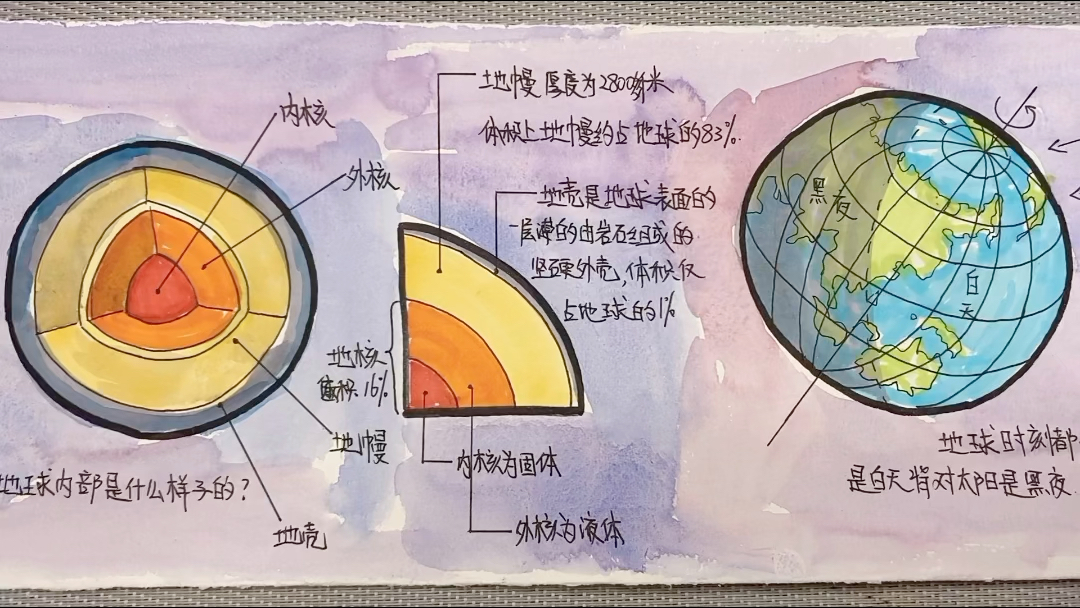 内核
外核
地幔
地壳
地球内部是什么样子的？
地幔厚度为2800多千米
体积上地幔约占地球的83%.
地壳是地球表面的
一层薄的由岩石组成的
坚硬外壳，体积仅
占地球的1%
地核
体积16%
内核为固体
外核为液体
黑夜
白天
地球时刻都
是白天背对太阳是黑夜